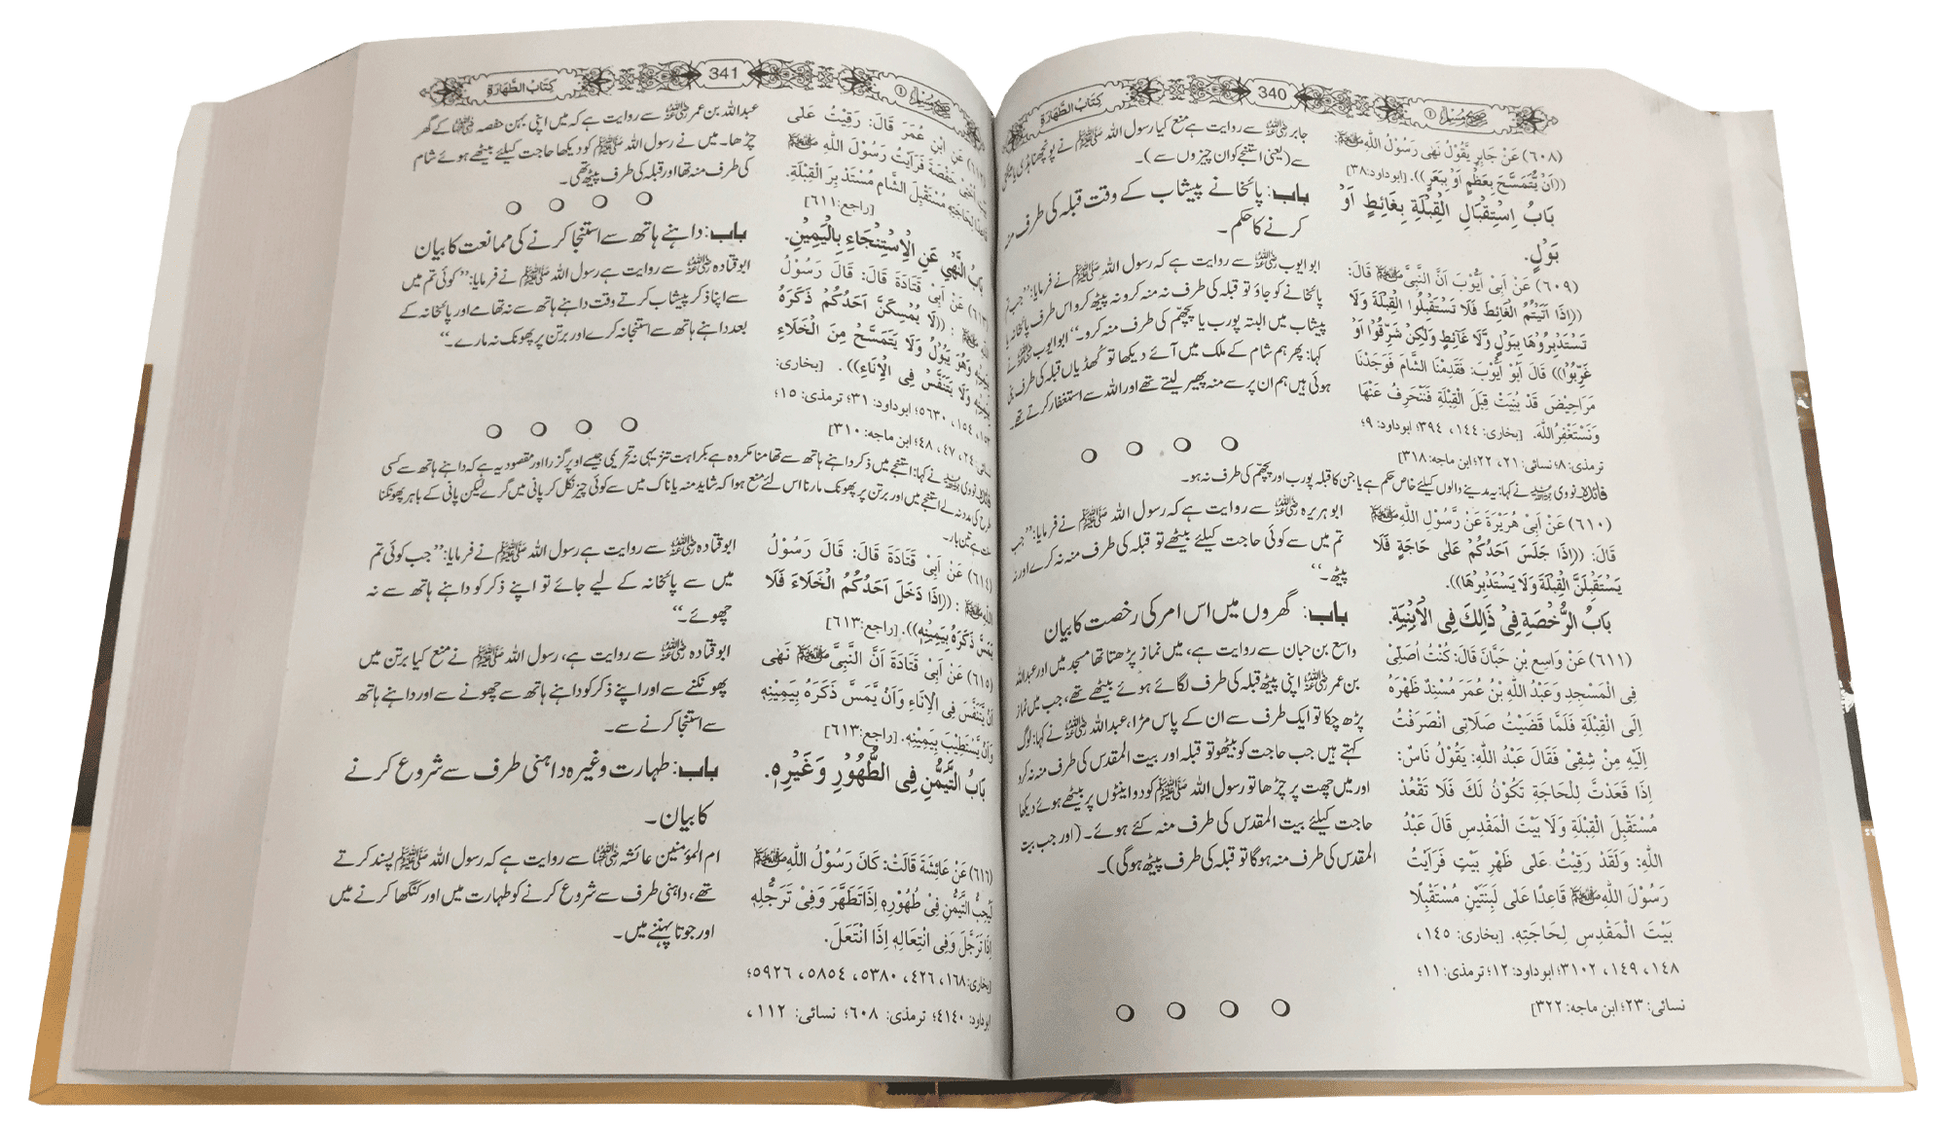 صحیح مسلم ①
340
كِتَابُ الطَّهَارَةِ
(٦٠٨) عَنْ جَابِرٍ يَّقُوْلُ نَهٰى رَسُوْلُ اللّٰهِ ﷺ:
((اَنْ يُّتَمَسَّحَ بِعَظْمٍ اَوْ بِبَعَرٍ)). [ابوداود:٣٨]
بَابُ اِسْتِقْبَالِ الْقِبْلَةِ بِغَائِطٍ اَوْ
بَوْلٍ.
(٦٠٩) عَنْ اَبِيْ اَيُّوْبَ اَنَّ النَّبِيَّ ﷺ قَالَ:
((اِذَا اَتَيْتُمُ الْغَائِطَ فَلَا تَسْتَقْبِلُوا الْقِبْلَةَ وَلَا
تَسْتَدْبِرُوْهَا بِبَوْلٍ وَّلَا غَائِطٍ وَلٰكِنْ شَرِّقُوْا اَوْ
غَرِّبُوْا)) قَالَ اَبُوْ اَيُّوْبَ: فَقَدِمْنَا الشَّامَ فَوَجَدْنَا
مَرَاحِيْضَ قَدْ بُنِيَتْ قِبَلَ الْقِبْلَةِ فَنَنْحَرِفُ عَنْهَا
وَنَسْتَغْفِرُ اللّٰهَ. [بخاری: ١٤٤، ٣٩٤؛ ابوداود: ٩؛
ترمذی: ٨؛ نسائی: ٢١، ٢٢؛ ابن ماجه: ٣١٨]
جابر رضی اللہ عنہ سے روایت ہے منع کیا رسول اللہ ﷺ نے پونچھنا ہڈی یا
سے (یعنی استنجے کو ان چیزوں سے)۔
باب: پائخانے پیشاب کے وقت قبلہ کی طرف
کرنے کا حکم۔
ابو ایوب رضی اللہ عنہ سے روایت ہے کہ رسول اللہ ﷺ نے فرمایا: ’’جب
پائخانے کو جاؤ تو قبلہ کی طرف نہ منہ کرو نہ پیٹھ کرو اس طرف پائخانہ یا
پیشاب میں البتہ پورب یا پچھم کی طرف منہ کرو۔‘‘ ابو ایوب رضی اللہ عنہ نے
کہا: پھر ہم شام کے ملک میں آئے دیکھا تو کھڈیاں قبلہ کی طرف بنی
ہوئی ہیں ہم ان پر سے منہ پھیر لیتے تھے اور اللہ سے استغفار کرتے تھے۔
فائدہ: نووی نے کہا: یہ مدینے والوں کیلئے خاص حکم ہے یا جن کا قبلہ پورب اور پچھم کی طرف نہ ہو۔
(٦١٠) عَنْ اَبِيْ هُرَيْرَةَ عَنْ رَّسُوْلِ اللّٰهِ ﷺ
قَالَ: ((اِذَا جَلَسَ اَحَدُكُمْ عَلٰى حَاجَةٍ فَلَا
يَسْتَقْبِلَنَّ الْقِبْلَةَ وَلَا يَسْتَدْبِرْهَا)).
بَابُ الرُّخْصَةِ فِيْ ذَالِكَ فِي الْاَبْنِيَةِ.
(٦١١) عَنْ وَاسِعِ بْنِ حَبَّانَ قَالَ: كُنْتُ اُصَلِّيْ
فِي الْمَسْجِدِ وَعَبْدُ اللّٰهِ بْنُ عُمَرَ مُسْنِدٌ ظَهْرَهُ
اِلَى الْقِبْلَةِ فَلَمَّا قَضَيْتُ صَلَاتِيْ انْصَرَفْتُ
اِلَيْهِ مِنْ شِقِّيْ فَقَالَ عَبْدُ اللّٰهِ: يَقُوْلُ نَاسٌ:
اِذَا قَعَدْتَّ لِلْحَاجَةِ تَكُوْنُ لَكَ فَلَا تَقْعُدْ
مُسْتَقْبِلَ الْقِبْلَةِ وَلَا بَيْتَ الْمَقْدِسِ قَالَ عَبْدُ
اللّٰهِ: وَلَقَدْ رَقِيْتُ عَلٰى ظَهْرِ بَيْتٍ فَرَاَيْتُ
رَسُوْلَ اللّٰهِ ﷺ قَاعِدًا عَلٰى لَبِنَتَيْنِ مُسْتَقْبِلًا
بَيْتَ الْمَقْدِسِ لِحَاجَتِهٖ. [بخاری: ١٤٥،
١٤٨، ١٤٩، ٣١٠٢؛ ابوداود: ١٢؛ ترمذی: ١١؛
نسائی: ٢٣؛ ابن ماجه: ٣٢٢]
ابو ہریرہ رضی اللہ عنہ سے روایت ہے کہ رسول اللہ ﷺ نے فرمایا: ’’جب
تم میں سے کوئی حاجت کیلئے بیٹھے تو قبلہ کی طرف منہ نہ کرے اور نہ
پیٹھ۔‘‘
باب: گھروں میں اس امر کی رخصت کا بیان
واسع بن حبان سے روایت ہے، میں نماز پڑھتا تھا مسجد میں اور عبداللہ
بن عمر رضی اللہ عنہ اپنی پیٹھ قبلہ کی طرف لگائے ہوئے بیٹھے تھے، جب میں نماز
پڑھ چکا تو ایک طرف سے ان کے پاس مڑا، عبداللہ رضی اللہ عنہ نے کہا: لوگ
کہتے ہیں جب حاجت کو بیٹھو تو قبلہ اور بیت المقدس کی طرف منہ نہ کرو
اور میں چھت پر چڑھا تو رسول اللہ ﷺ کو دو اینٹوں پر بیٹھے ہوئے دیکھا
حاجت کیلئے بیت المقدس کی طرف منہ کئے ہوئے۔ (اور جب بیت
المقدس کی طرف منہ ہوگا تو قبلہ کی طرف پیٹھ ہوگی)۔
صحیح مسلم ①
341
كِتَابُ الطَّهَارَةِ
(٦١٢) عَنِ ابْنِ عُمَرَ قَالَ: رَقِيْتُ عَلٰى
حَفْصَةَ فَرَاَيْتُ رَسُوْلَ اللّٰهِ ﷺ
مُسْتَقْبِلَ الشَّامِ مُسْتَدْبِرَ الْقِبْلَةِ.
[راجع:٦١١]
بَابُ النَّهْيِ عَنِ الْاِسْتِنْجَاءِ بِالْيَمِيْنِ.
(٦١٣) عَنْ اَبِيْ قَتَادَةَ قَالَ: قَالَ رَسُوْلُ
اللّٰهِ ﷺ: ((لَا يُمْسِكَنَّ اَحَدُكُمْ ذَكَرَهُ
وَهُوَ يَبُوْلُ وَلَا يَتَمَسَّحْ مِنَ الْخَلَاءِ
وَلَا يَتَنَفَّسْ فِي الْاِنَاءِ)). [بخاری:
١٥٣، ١٥٤، ٥٦٣٠؛ ابوداود: ٣١؛ ترمذی: ١٥؛
٢٤، ٤٧، ٤٨؛ ابن ماجه: ٣١٠]
عبداللہ بن عمر رضی اللہ عنہ سے روایت ہے کہ میں اپنی بہن حفصہ رضی اللہ عنہا کے گھر
چڑھا۔ میں نے رسول اللہ ﷺ کو دیکھا حاجت کیلئے بیٹھے ہوئے شام
کی طرف منہ تھا اور قبلہ کی طرف پیٹھ تھی۔
باب: داہنے ہاتھ سے استنجا کرنے کی ممانعت کا بیان
ابوقتادہ رضی اللہ عنہ سے روایت ہے رسول اللہ ﷺ نے فرمایا: ’’کوئی تم میں
سے اپنا ذکر پیشاب کرتے وقت داہنے ہاتھ سے نہ تھامے اور پائخانہ کے
بعد داہنے ہاتھ سے استنجا نہ کرے اور برتن پر پھونک نہ مارے۔‘‘
فائدہ: نووی نے کہا: استنجے میں ذکر داہنے ہاتھ سے تھامنا مکروہ ہے بکراہت تنزیہی نہ تحریمی جیسے اوپر گزرا اور مقصود یہ ہے کہ داہنے ہاتھ سے کسی
طرح کی مدد نہ لے استنجے میں اور برتن پر پھونک مارنا اس لئے منع ہوا کہ شاید منہ یا ناک میں سے کوئی چیز نکل کر پانی میں گرے لیکن پانی کے باہر پھونکنا
ہے تین بار۔
(٦١٤) عَنْ اَبِيْ قَتَادَةَ قَالَ: قَالَ رَسُوْلُ
اللّٰهِ ﷺ: ((اِذَا دَخَلَ اَحَدُكُمُ الْخَلَاءَ فَلَا
يَمَسَّ ذَكَرَهُ بِيَمِيْنِهٖ)). [راجع:٦١٣]
(٦١٥) عَنْ اَبِيْ قَتَادَةَ اَنَّ النَّبِيَّ ﷺ نَهٰى
اَنْ يَّتَنَفَّسَ فِي الْاِنَاءِ وَاَنْ يَّمَسَّ ذَكَرَهُ بِيَمِيْنِهٖ
وَاَنْ يَّسْتَطِيْبَ بِيَمِيْنِهٖ. [راجع:٦١٣]
بَابُ التَّيَمُّنِ فِي الطُّهُوْرِ وَغَيْرِهٖ.
(٦١٦) عَنْ عَائِشَةَ قَالَتْ: كَانَ رَسُوْلُ اللّٰهِ ﷺ
لَيُحِبُّ التَّيَمُّنَ فِيْ طُهُوْرِهٖ اِذَا تَطَهَّرَ وَفِيْ تَرَجُّلِهٖ
اِذَا تَرَجَّلَ وَفِي انْتِعَالِهٖ اِذَا انْتَعَلَ.
[بخاری: ١٦٨، ٤٢٦، ٥٣٨٠، ٥٨٥٤، ٥٩٢٦؛
ابوداود: ٤١٤٠؛ ترمذی: ٦٠٨؛ نسائی: ١١٢،
ابوقتادہ رضی اللہ عنہ سے روایت ہے رسول اللہ ﷺ نے فرمایا: ’’جب کوئی تم
میں سے پائخانہ کے لیے جائے تو اپنے ذکر کو داہنے ہاتھ سے نہ
چھوئے۔‘‘
ابوقتادہ رضی اللہ عنہ سے روایت ہے، رسول اللہ ﷺ نے منع کیا برتن میں
پھونکنے سے اور اپنے ذکر کو داہنے ہاتھ سے چھونے سے اور داہنے ہاتھ
سے استنجا کرنے سے۔
باب: طہارت وغیرہ داہنی طرف سے شروع کرنے
کا بیان۔
ام المؤمنین عائشہ رضی اللہ عنہا سے روایت ہے کہ رسول اللہ ﷺ پسند کرتے
تھے، داہنی طرف سے شروع کرنے کو طہارت میں اور کنگھا کرنے میں
اور جوتا پہننے میں۔